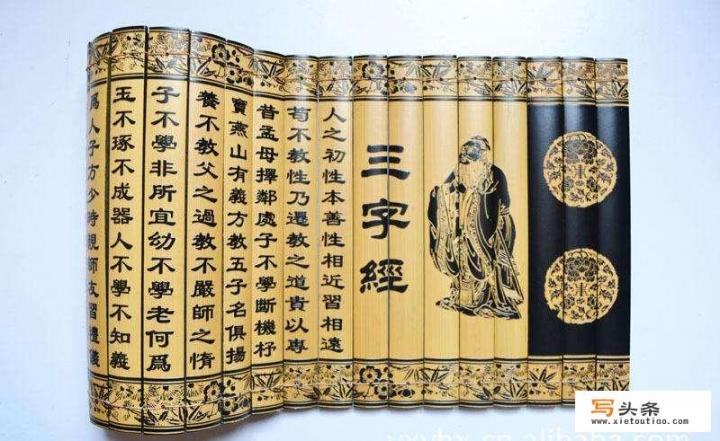 三字經
人之初性本善性相近習相遠
苟不教性乃遷教之道貴以專
昔孟母擇鄰處子不學斷機杼
竇燕山有義方教五子名俱揚
養不教父之過教不嚴師之惰
子不學非所宜幼不學老何爲
玉不琢不成器人不學不知義
爲人子方少時親師友習禮儀
写头条
www.xietoutiao.com